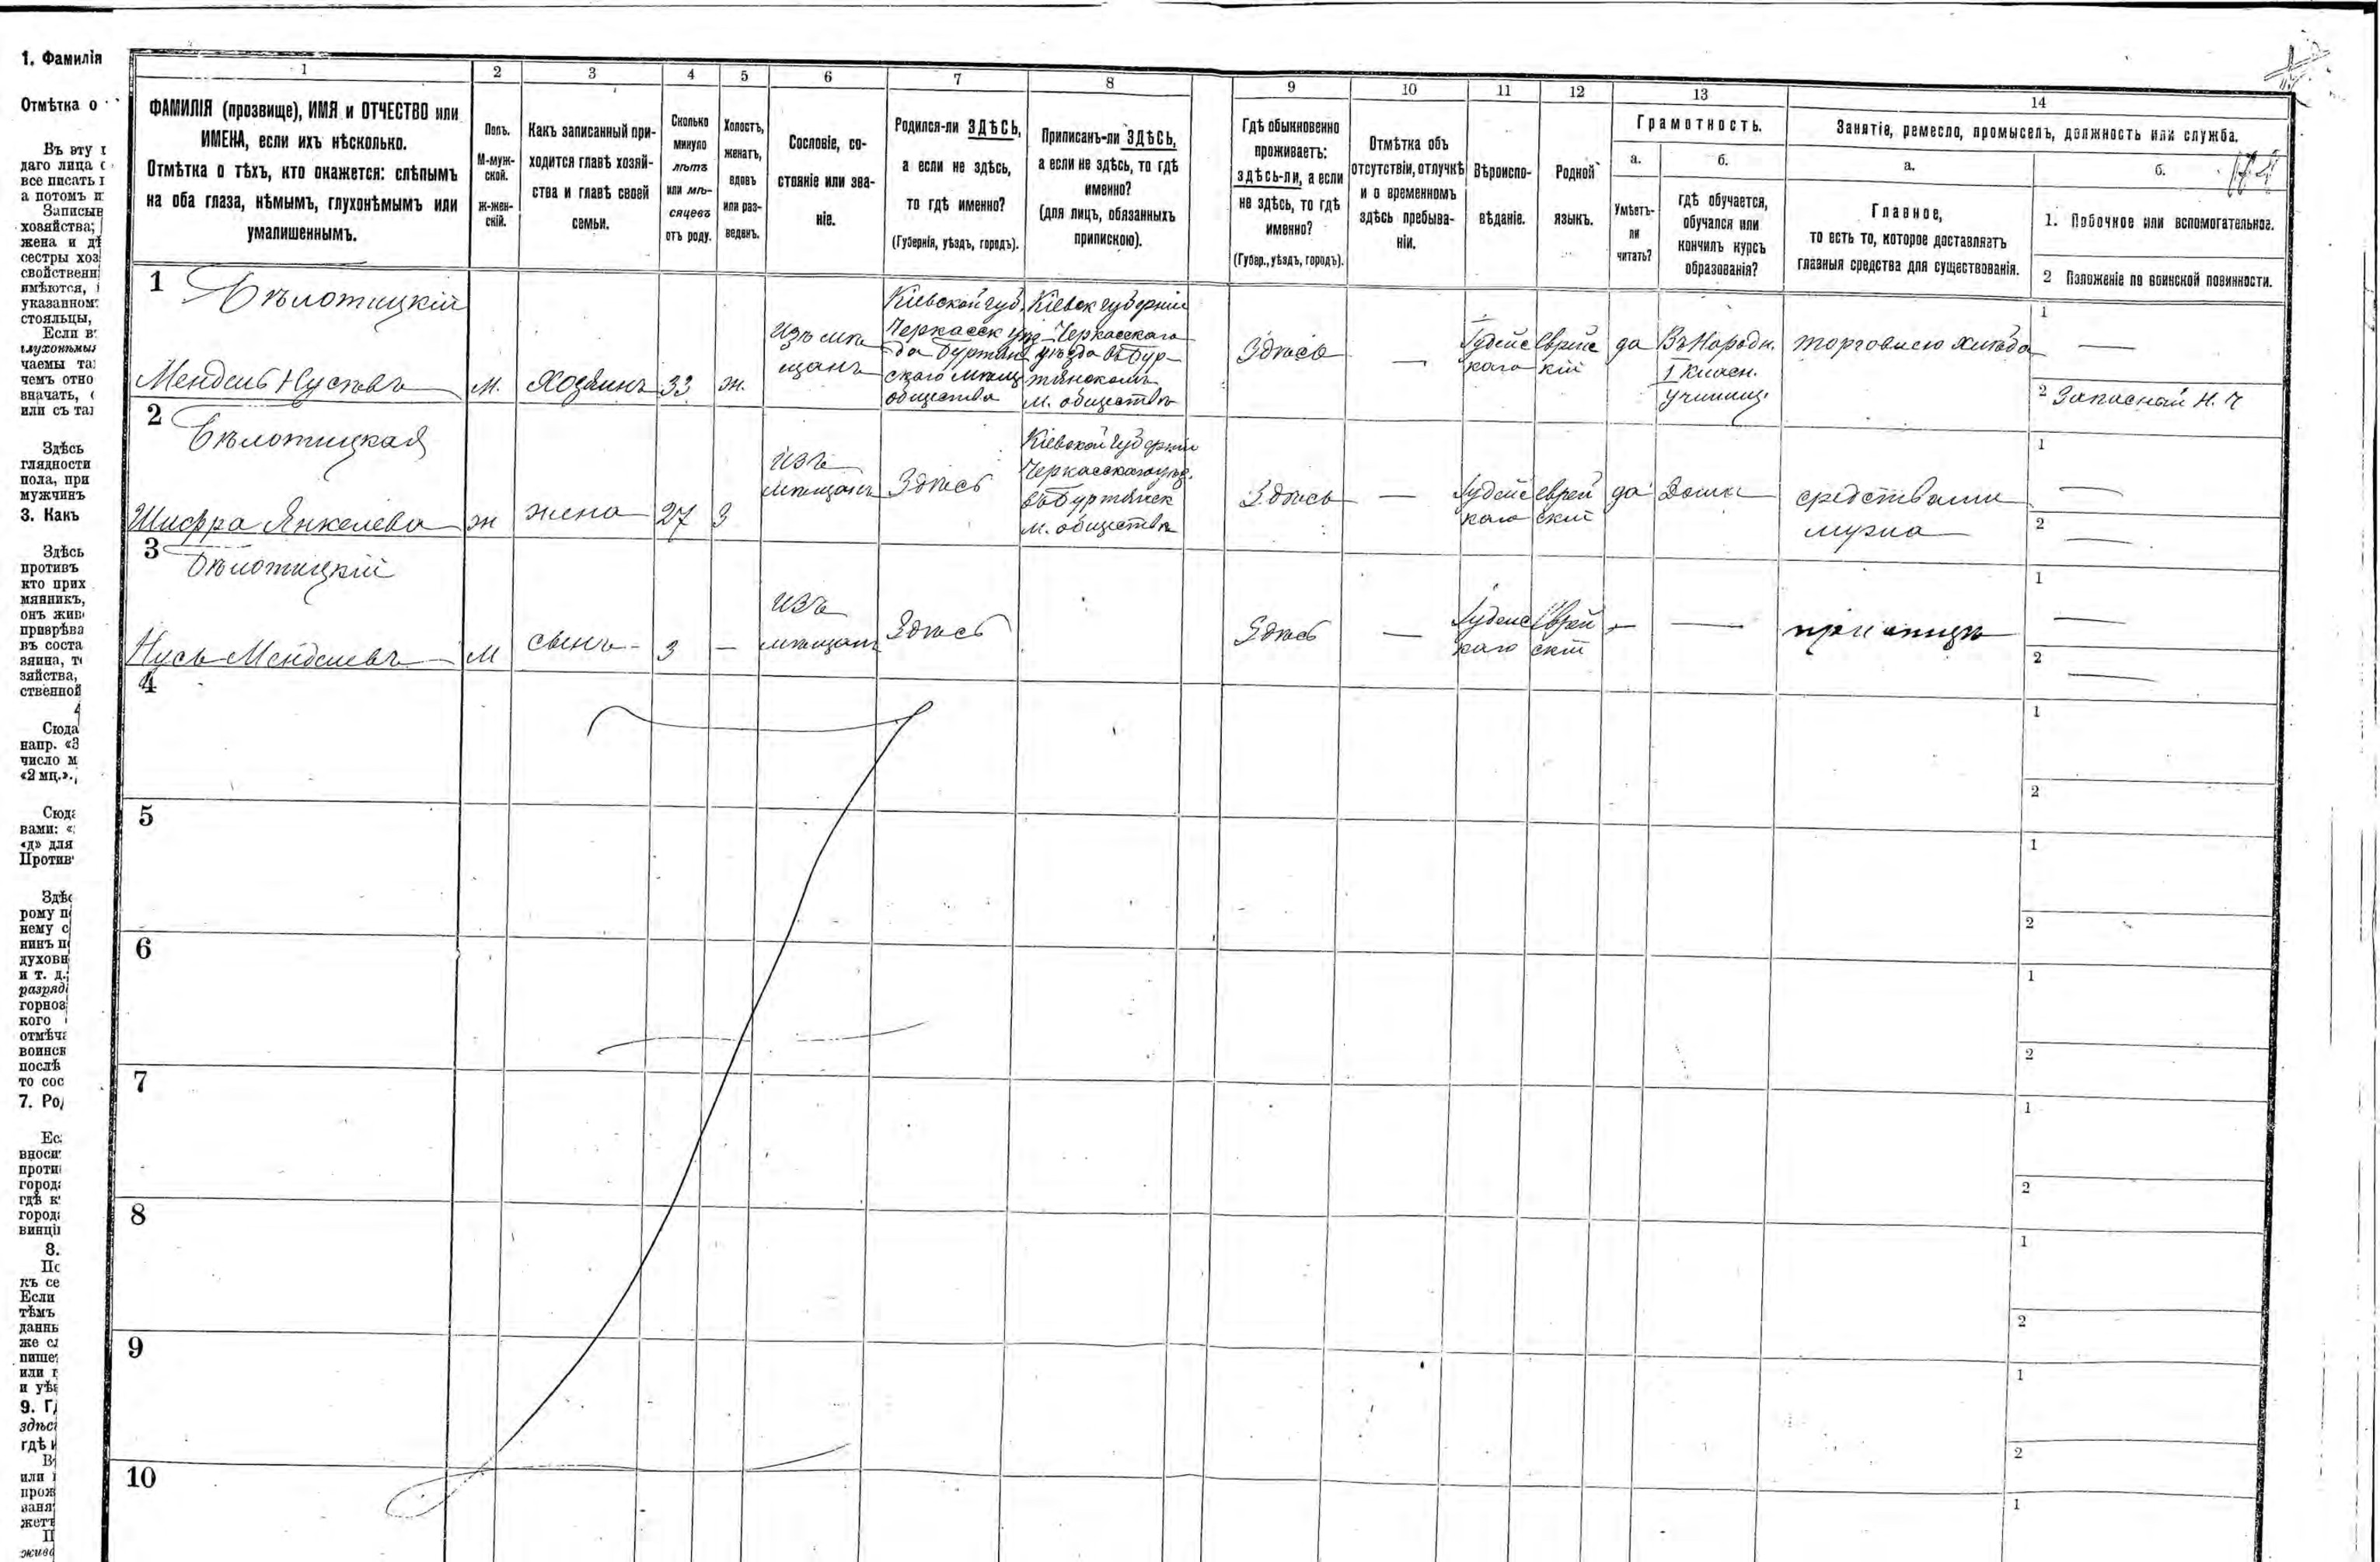 1. Фамилія
Отмѣтка о
Въ эту
даго лица
все писать
а потомъ
Записыв
хозяйства;
жена и дѣ
сестры хоз
свойственн
имѣются,
указанном
стояльцы,
Если в
глухонѣмых
чаемы та
чемъ отно
вначать,
или съ та
Здѣсь
глядности
пола, при
мужчинъ
3. Какъ
Здѣсь
противъ
кто прих
мянникъ,
онъ живе
призрѣва
въ соста
зяина, т
зяйства,
ственной
4
Сюда
напр. «3
число м
«2 мц.».
Сюда
вами: «
«д» для
Против
Здѣс
рому п
нему с
нинъ п
духовн
и т. д.
разряд
горноз
кого
отмѣча
воинск
послѣ
то сос
7. Ро
Ес
вноси
проти
город
гдѣ к
город
винці
8.
По
къ се
Если
тѣмъ
даннь
же с
пише
или г
и уѣ
9. Г
здѣс
гдѣ
В
или
прож
ваня
жетъ
П
живе
1
2
3
4
5
6
7
8
9
10
11
12
13
14
ФАМИЛІЯ (прозвище), ИМЯ и ОТЧЕСТВО или
ИМЕНА, если ихъ нѣсколько.
Отмѣтка о тѣхъ, кто окажется: слѣпымъ
на оба глаза, нѣмымъ, глухонѣмымъ или
умалишеннымъ.
Полъ.
М-муж-
ской.
Ж-жен-
скій.
Какъ записанный при-
ходится главѣ хозяй-
ства и главѣ своей
семьи.
Сколько
минуло
лѣтъ
или мѣ-
сяцевъ
отъ роду.
Холостъ,
женатъ,
вдовъ
или раз-
веденъ.
Сословіе, со-
стояніе или зва-
ніе.
Родился-ли ЗДѢСЬ,
а если не здѣсь,
то гдѣ именно?
(Губернія, уѣздъ, городъ).
Приписанъ-ли ЗДѢСЬ,
а если не здѣсь, то гдѣ
именно?
(для лицъ, обязанныхъ
припискою).
Гдѣ обыкновенно
проживаетъ:
здѣсь-ли, а если
не здѣсь, то гдѣ
именно?
(Губер., уѣздъ, городъ).
Отмѣтка объ
отсутствіи, отлучкѣ
и о временномъ
здѣсь пребыва-
ніи.
Вѣроиспо-
вѣданіе.
Родной
языкъ.
Грамотность.
а.
Умѣетъ-
ли
читать?
б.
гдѣ обучается,
обучался или
кончилъ курсъ
образованія?
Занятіе, ремесло, промыселъ, должность или служба.
а.
Главное,
то есть то, которое доставляетъ
главныя средства для существованія.
б.
174
1. Побочное или вспомогательное.
2 Положеніе по воинской повинности.
1
Бѣлотицкій
Мендель Нусевъ
м.
Хозяинъ
33
ж.
Изъ мѣ
щанъ
Кіевской губ.
Черкасск уѣз
да Буртян
скаго мѣщ
общества
Кіевск губерніи
Черкасскаго
уѣзда въ Бур-
тянскомъ
м. обществѣ
Здѣсь
—
Іудейс
каго
Еврейс
кій
да
Въ Народн.
1 класн.
училищ.
торговлею хлѣба
1 —
2 Запасный Н. Ч
2
Бѣлотицкая
Шифра Янкелева
ж
жена
27
З
изъ
мѣщанъ
Здѣсь
Кіевской губерніи
Черкасскаго уѣз.
въ Буртянск
м. обществѣ
Здѣсь
—
Іудейс
каго
Еврей
скій
да
Дома
средствами
мужа
1 —
2 —
3
Бѣлотицкій
Нусь Менделевъ
М
сынъ
3
—
изъ
мѣщанъ
Здѣсь
Здѣсь
—
Іудейс
каго
Еврей
скій
—
—
при отцѣ
1 —
2 —
4
1
2
5
1
2
6
1
2
7
1
2
8
1
2
9
1
2
10
1